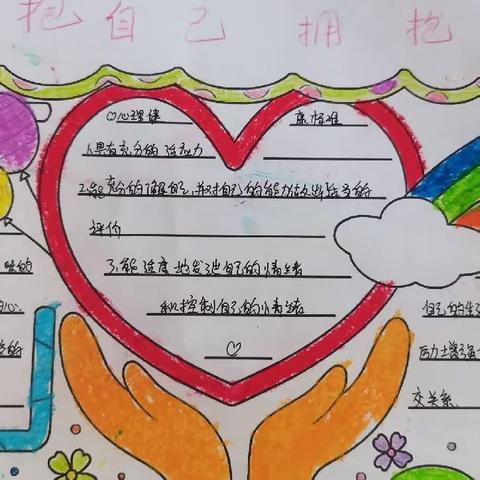 抱自己 拥抱
心理健 康标准
1.具有充分的适应力
2.能充分的了解自己,并对自己的能力做出适当的
评价
3.能适度地发泄自己的情绪
和控制自己的情绪
自己的生
后力增强
交关系